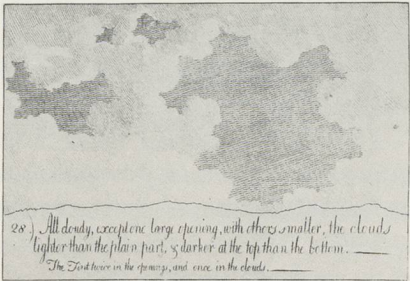 28) All cloudy, except one large opening, with others smaller, the clouds
lighter than the plain part, & darker at the top than the bottom.
The Tint twice in the openings, and once in the clouds.